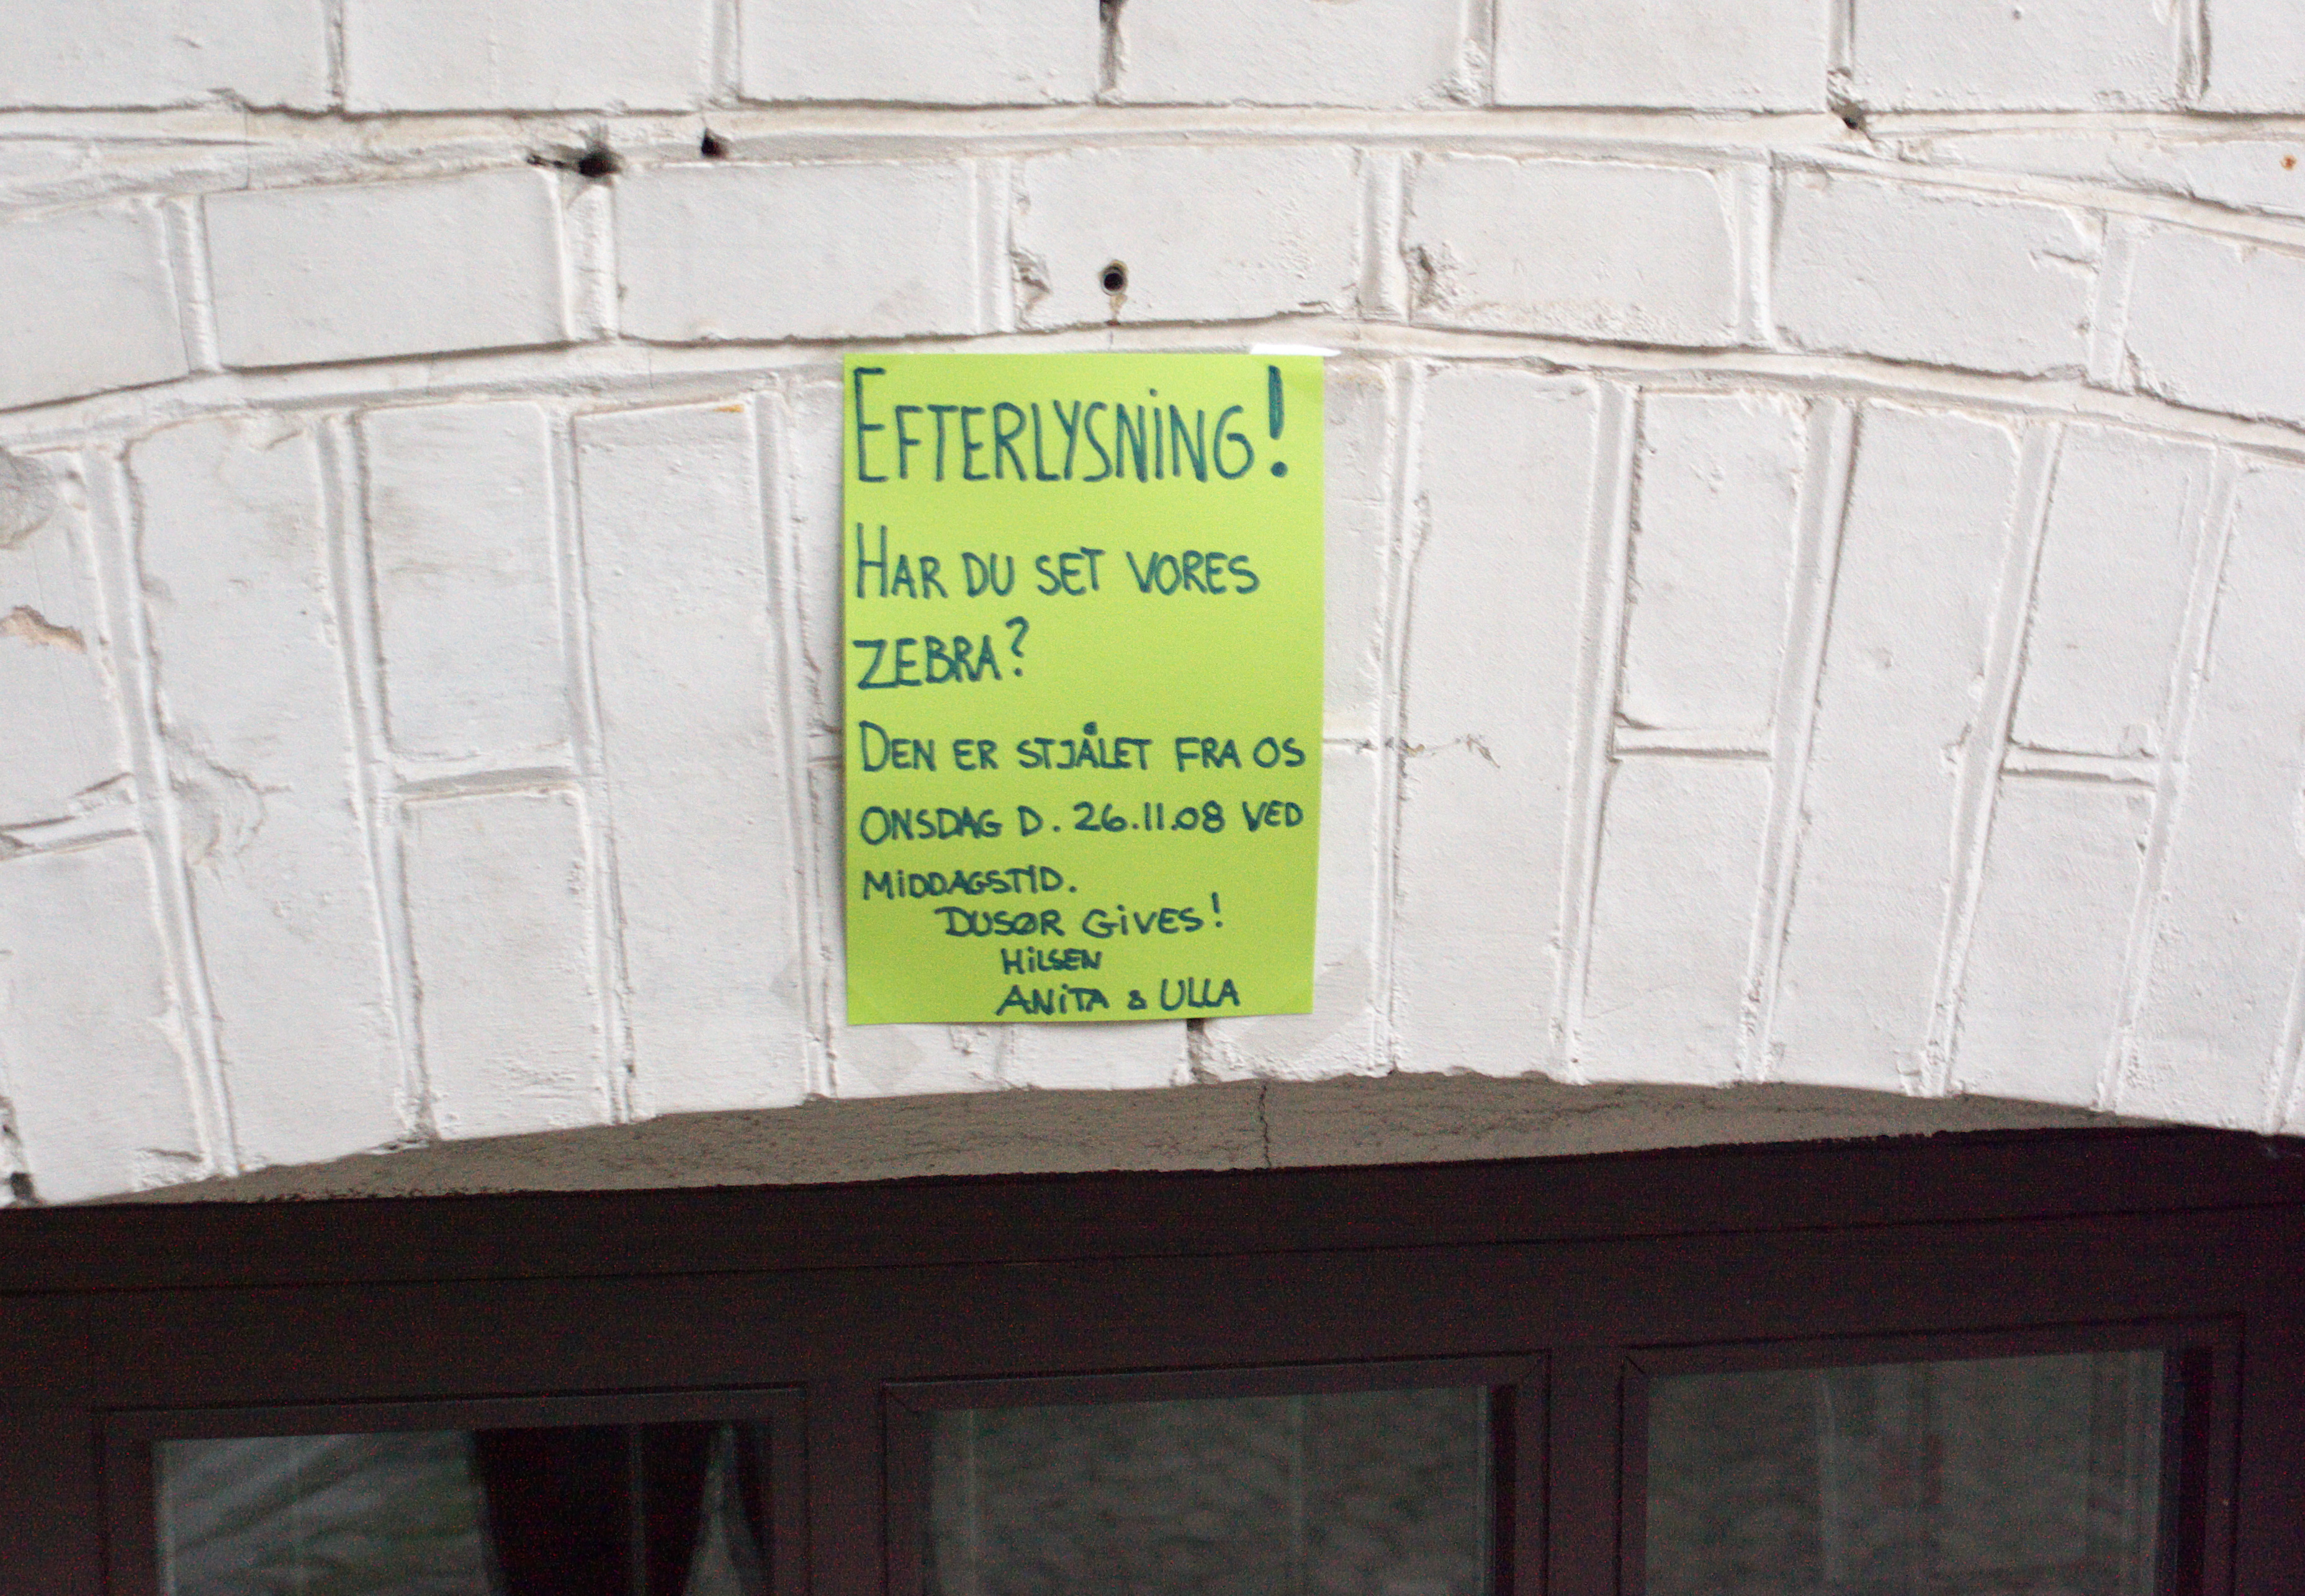 EFTERLYSNiNG!
HAR DU SET VORES
ZEBRA?
DEN ER STJÅLET FRA OS
ONSDAG D. 26.11.08 VED
MiDDAGSTID.
DUSØR GiVES!
HiLSEN
ANiTA & ULLA